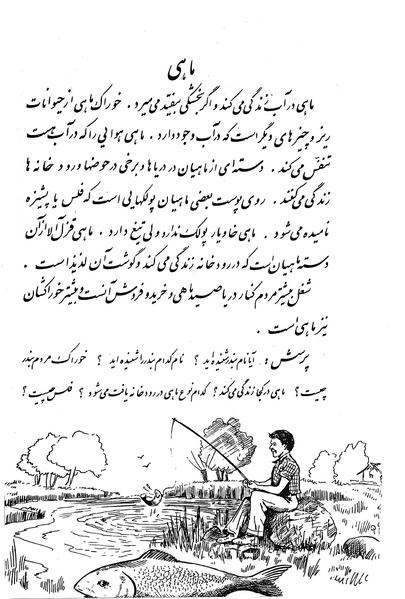 ماهی
ماهی در آب زندگی می‌کند و اگر بخشکی بیفتد می‌میرد . خوراک ماهی از حیوانات
ریز و چیزهای دیگر است که در آب وجود دارد . ماهی هوایی را که در آب هست
تنفّس می‌کند . دسته‌ای از ماهیان در دریاها و برخی در حوضها و رودخانه‌ها
زندگی می‌کنند . روی پوست بعضی ماهیان پولکهایی است که فلس یا پشیزه
نامیده می‌شود . ماهی خاویار پولک ندارد ولی تیغ دارد . ماهی قزل‌آلا از آن
دسته ماهیان است که در رودخانه زندگی می‌کند و گوشت آن لذیذ است .
شغل بیشتر مردم کنار دریا صید ماهی و خرید و فروش آنست و بیشتر خوراکشان
نیز ماهی است .
پرسش : آیا نام بندر شنیده‌اید ؟ نام کدام بندر را شنیده‌اید ؟ خوراک مردم بندر
چیست ؟ ماهی در کجا زندگی می‌کند ؟ کدام نوع ماهی در رودخانه یافت می‌شود ؟ فلس چیست ؟